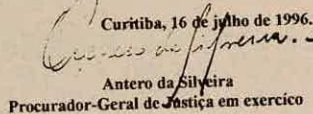 Curitiba, 16 de julho de 1996.
Antero da Silveira
Procurador-Geral de Justiça em exercíco